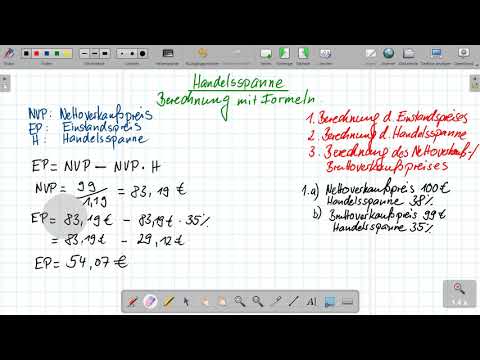 Handelsspanne
Berechnung mit Formeln
NVP: Nettoverkaufspreis
EP: Einstandspreis
H: Handelsspanne
EP = NVP - NVP · H
NVP = 99 / 1,19 = 83,19 €
EP = 83,19 € - 83,19 € · 35%
= 83,19 € - 29,12 €
EP = 54,07 €
1. Berechnung d. Einstandspreises
2. Berechnung d. Handelsspanne
3. Berechnung des Nettoverkaufs-/
Bruttoverkaufspreises
1. a) Nettoverkaufspreis 100 €
Handelsspanne 38%
b) Bruttoverkaufspreis 99 €
Handelsspanne 35%